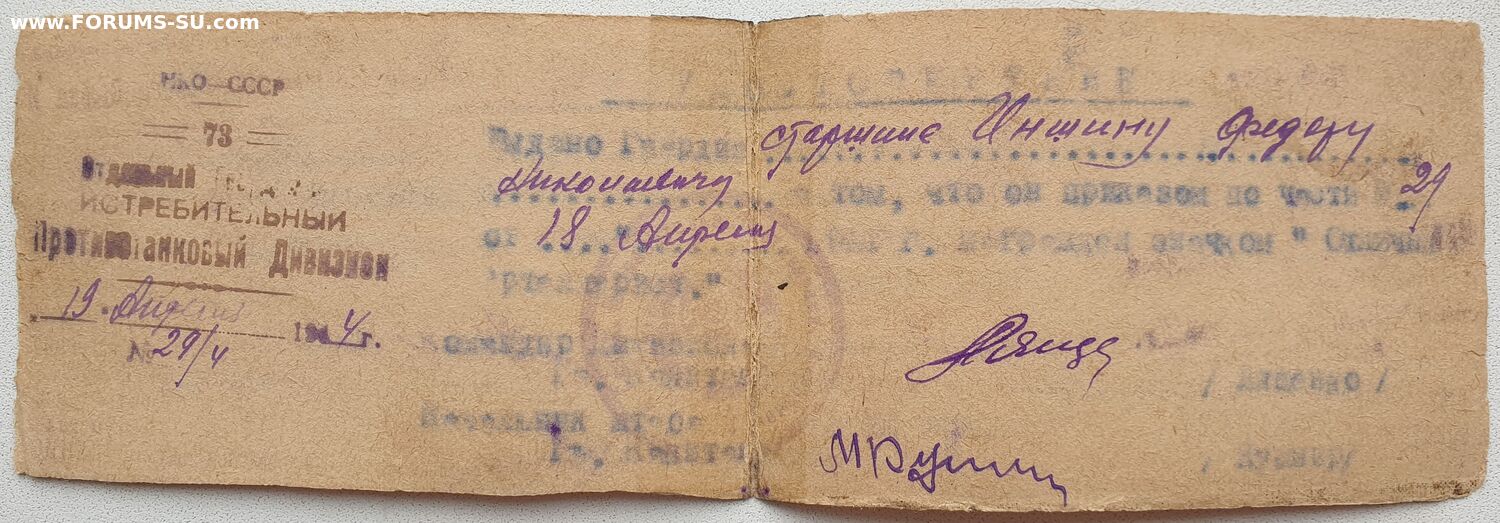 www.FORUMS-SU.com
НКО СССР
73
Отдельный
ИСТРЕБИТЕЛЬНЫЙ
Противотанковый Дивизион
19. Апреля 1944 г.
№ 29/4
УДОСТОВЕРЕНИЕ
Выдано Гвардии старшине Иншину Федору
Николаевичу в том, что он приказом по части № 29
от 18 Апреля г. награжден значком "Отличный
артиллерист."
Командир
Гв. Капитан
Начальник штаба
Гв. Капитан